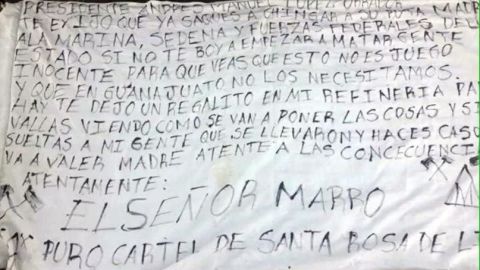 PRESIDENTE ANDRE MANUEL LOPEZ OBRADOR
TE EXIJO QUE YA SAQUES A CHINGAR A SU PUTA MADRE
A LA MARINA, SEDENA Y FUERZAS FEDERALES DEL
ESTADO SI NO TE BOY A EMPEZAR A MATAR GENTE
INOCENTE PARA QUE VEAS QUE ESTO NO ES JUEGO
Y QUE EN GUANAJUATO NO LOS NECESITAMOS.
HAY TE DEJO UN REGALITO EN MI REFINERIA PA
VALLAS VIENDO COMO SE VAN A PONER LAS COSAS Y SI
SUELTAS A MI GENTE QUE SE LLEVARON Y HACES CASO
VA A VALER MADRE ATENTE A LAS CONCECUENCI
ATENTAMENTE:
EL SEÑOR MARRO
PURO CARTEL DE SANTA ROSA DE L